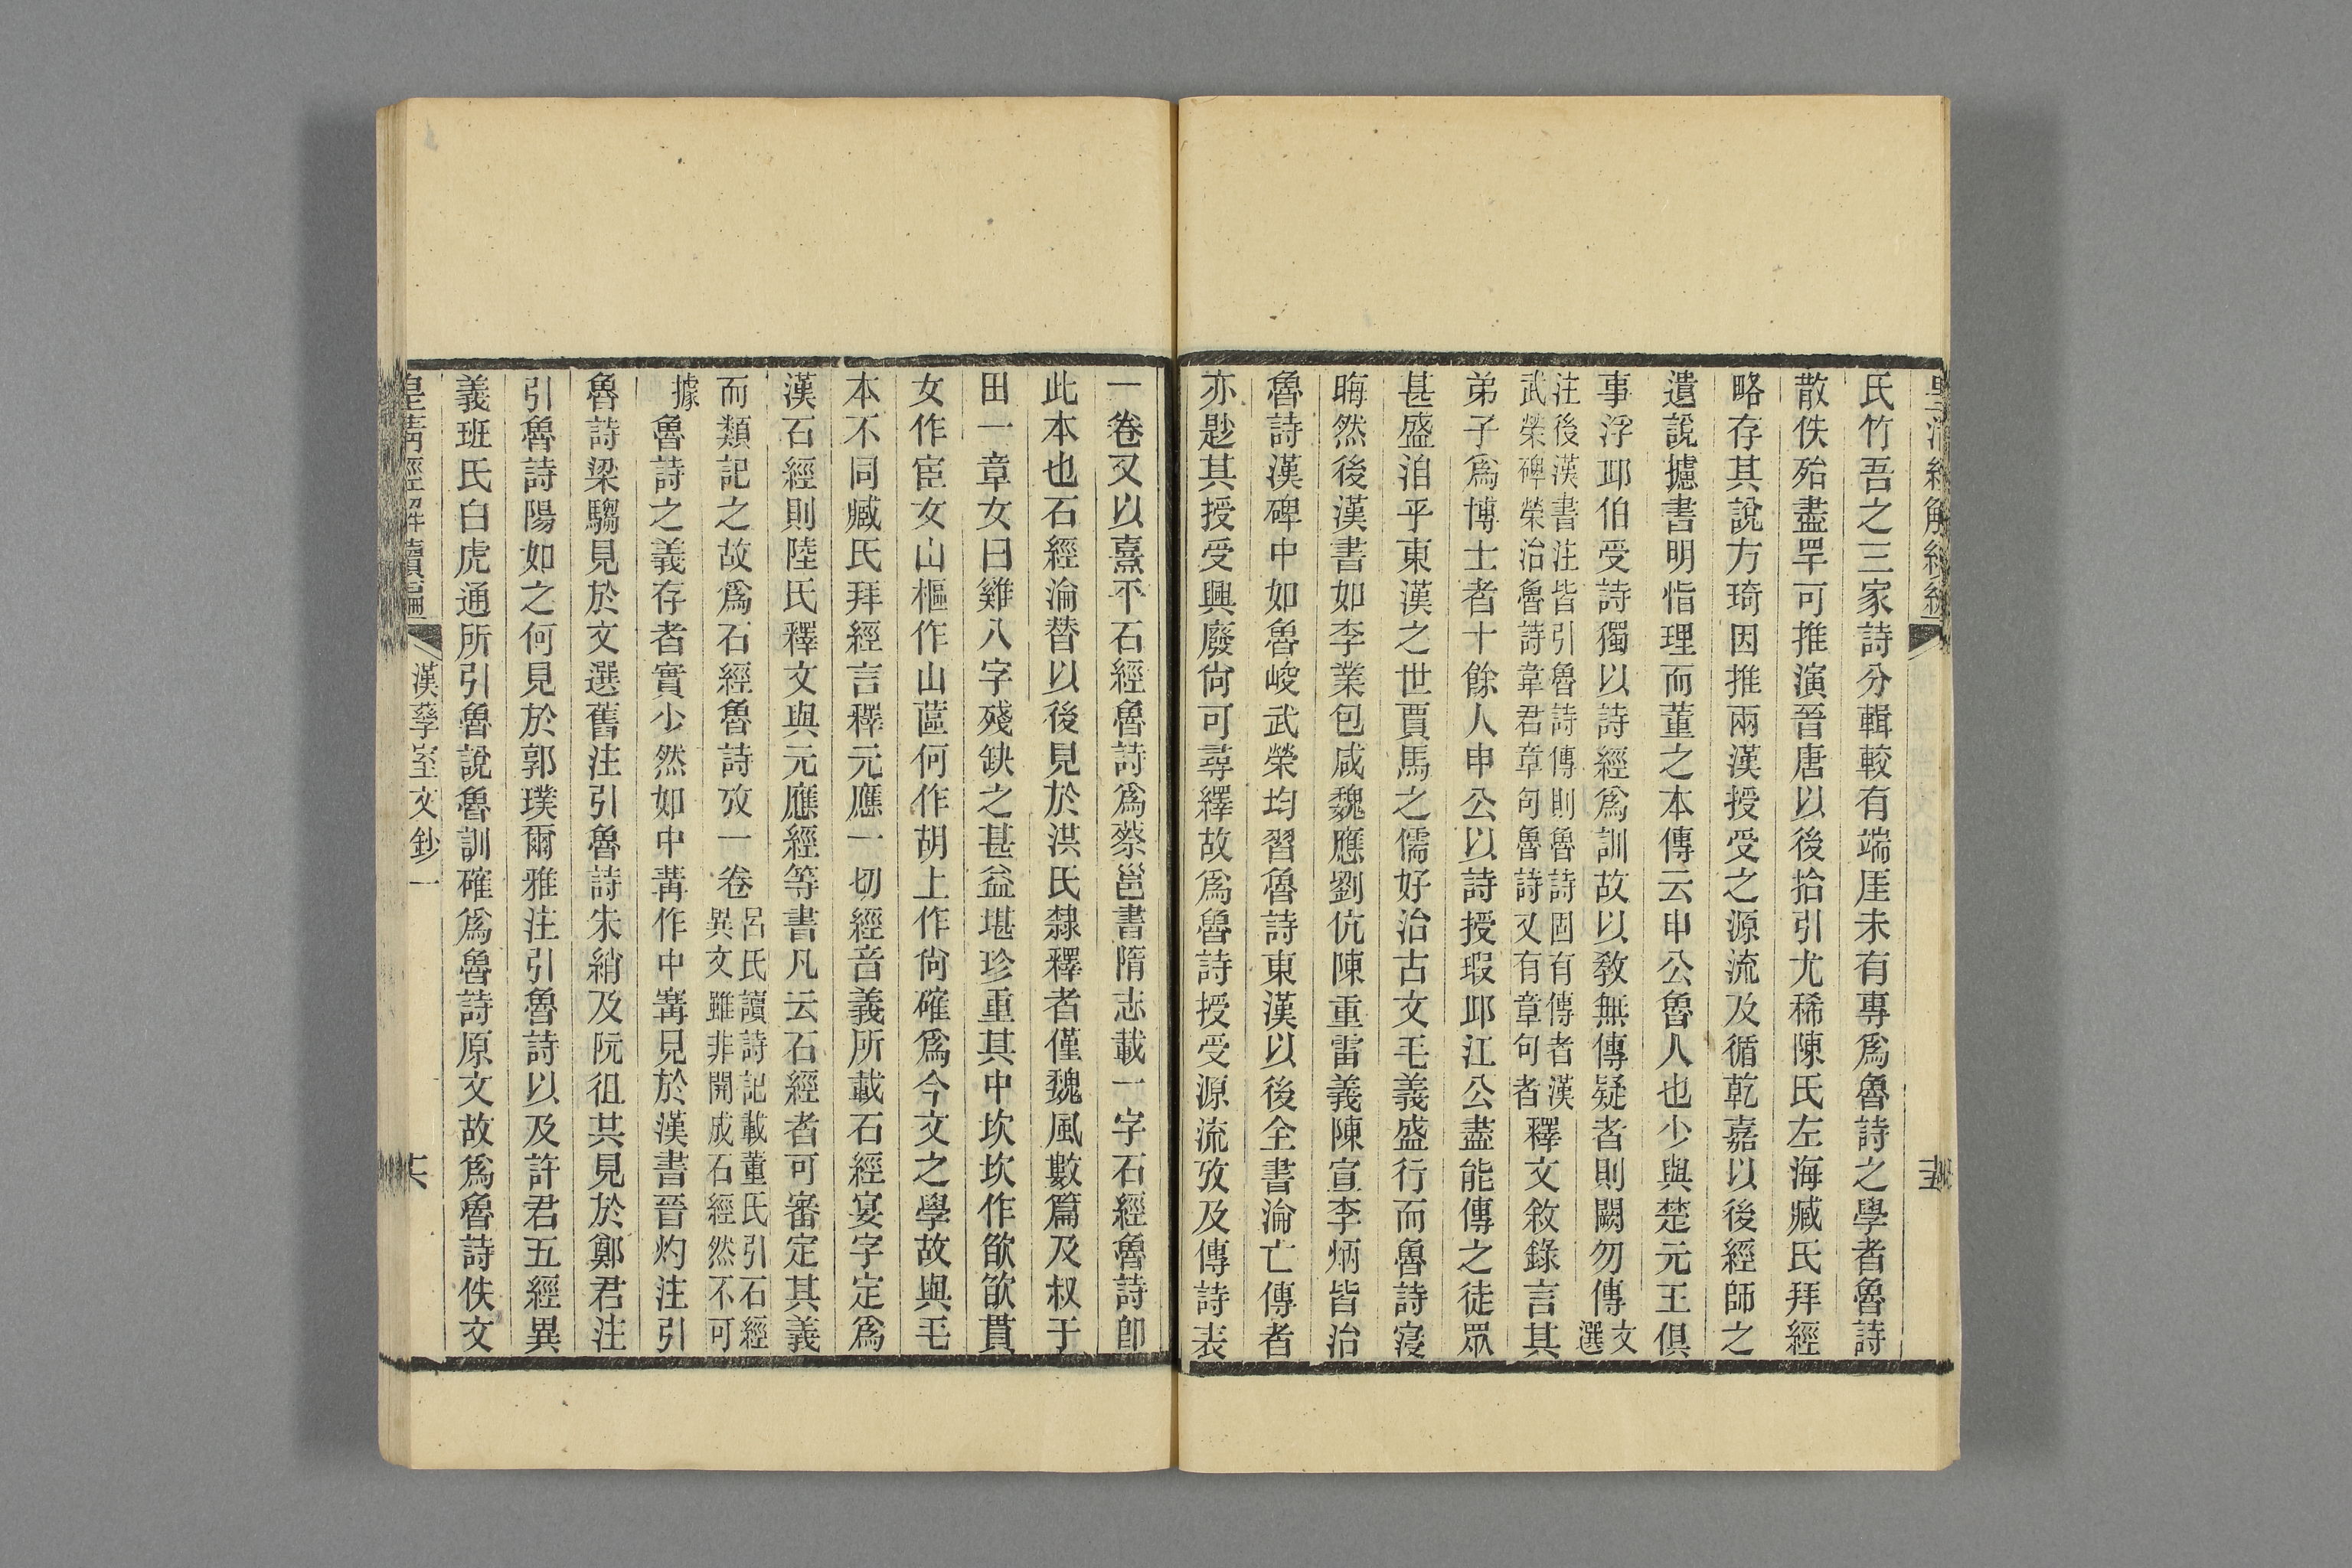 氏竹吾之三家詩分輯較有端厓未有專爲魯詩之學者魯詩
散佚殆盡罕可推演晉唐以後拾引尤稀陳氏左海臧氏拜經
略存其說方琦因推兩漢授受之源流及循乾嘉以後經師之
遺說攄書明恉理而董之本傳云申公魯人也少與楚元王俱
事浮邱伯受詩獨以詩經爲訓故以敎無傳疑者則闕勿傳文選
注後漢書注皆引魯詩傳則魯詩固有傳者漢
武榮碑榮治魯詩韋君章句魯詩又有章句者釋文敘錄言其
弟子爲博士者十餘人申公以詩授瑕邱江公盡能傳之徒眾
甚盛洎乎東漢之世賈馬之儒好治古文毛義盛行而魯詩寖
晦然後漢書如李業包咸魏應劉伉陳重雷義陳宣李炳皆治
魯詩漢碑中如魯峻武榮均習魯詩東漢以後全書淪亡傳者
亦尟其授受興廢尙可尋繹故爲魯詩授受源流攷及傳詩表
一卷又以熹平石經魯詩爲蔡邕書隋志載一字石經魯詩卽
此本也石經淪替以後見於洪氏隸釋者僅魏風數篇及叔于
田一章女曰雞八字殘缺之甚益堪珍重其中坎坎作欿欿貫
女作宦女山樞作山蓲何作胡上作尙確爲今文之學故與毛
本不同臧氏拜經言釋元應一切經音義所載石經宴字定爲
漢石經則陸氏釋文與元應經等書凡云石經者可審定其義
而類記之故爲石經魯詩攷一卷呂氏讀詩記載董氏引石經
異文雖非開成石經然不可
據魯詩之義存者實少然如中冓作中寗見於漢書晉灼注引
魯詩梁騶見於文選舊注引魯詩朱綃及阮徂共見於鄭君注
引魯詩陽如之何見於郭璞爾雅注引魯詩以及許君五經異
義班氏白虎通所引魯說魯訓確爲魯詩原文故爲魯詩佚文
皇淸經解續編
漢孳室文鈔一